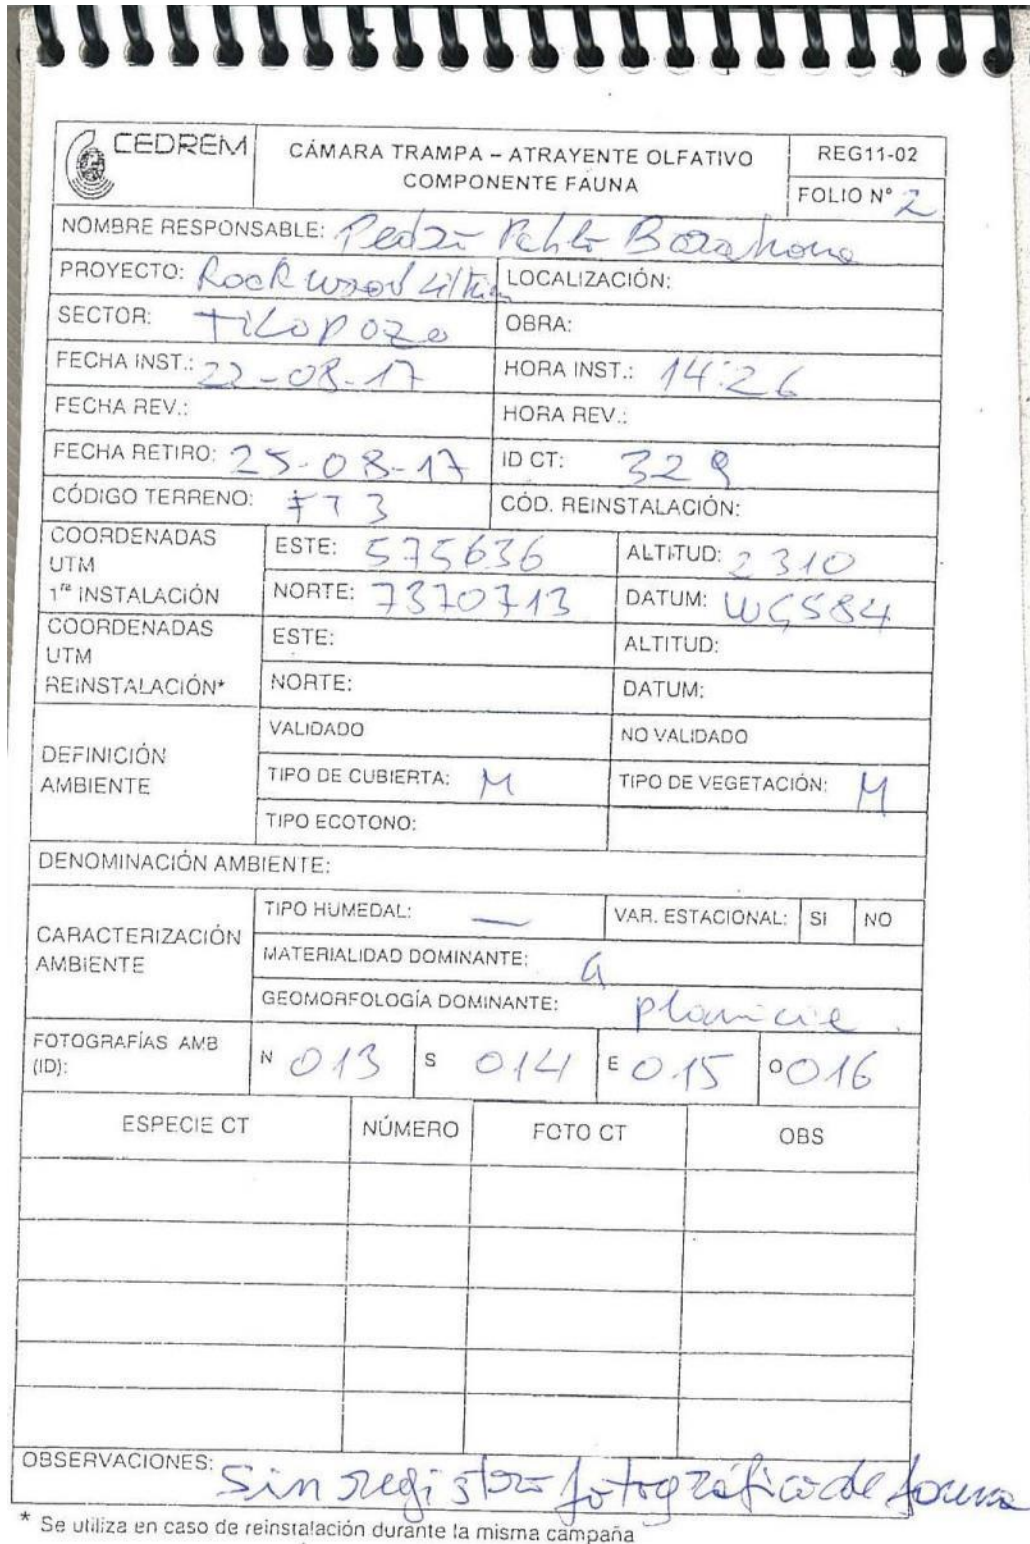 CEDREM
CÁMARA TRAMPA – ATRAYENTE OLFATIVO
COMPONENTE FAUNA
REG11-02
FOLIO Nº 2
NOMBRE RESPONSABLE: Pedro Pablo Barahona
PROYECTO: Rockwood Lithium
LOCALIZACIÓN:
SECTOR: Tilopozo
OBRA:
FECHA INST.: 22-08-17
HORA INST.: 14:26
FECHA REV.:
HORA REV.:
FECHA RETIRO: 25-08-17
ID CT: 329
CÓDIGO TERRENO: FT3
CÓD. REINSTALACIÓN:
COORDENADAS
UTM
1ra INSTALACIÓN
ESTE: 575636
ALTITUD: 2310
NORTE: 7370713
DATUM: WGS84
COORDENADAS
UTM
REINSTALACIÓN*
ESTE:
ALTITUD:
NORTE:
DATUM:
DEFINICIÓN
AMBIENTE
VALIDADO
NO VALIDADO
TIPO DE CUBIERTA: M
TIPO DE VEGETACIÓN: M
TIPO ECOTONO:
DENOMINACIÓN AMBIENTE:
CARACTERIZACIÓN
AMBIENTE
TIPO HUMEDAL: —
VAR. ESTACIONAL: SI NO
MATERIALIDAD DOMINANTE:
GEOMORFOLOGÍA DOMINANTE: planicie.
FOTOGRAFÍAS AMB
(ID):
N 013 S 014 E 015 O 016
ESPECIE CT NÚMERO FOTO CT OBS
OBSERVACIONES: Sin registro fotográfico de fauna
* Se utiliza en caso de reinstalación durante la misma campaña